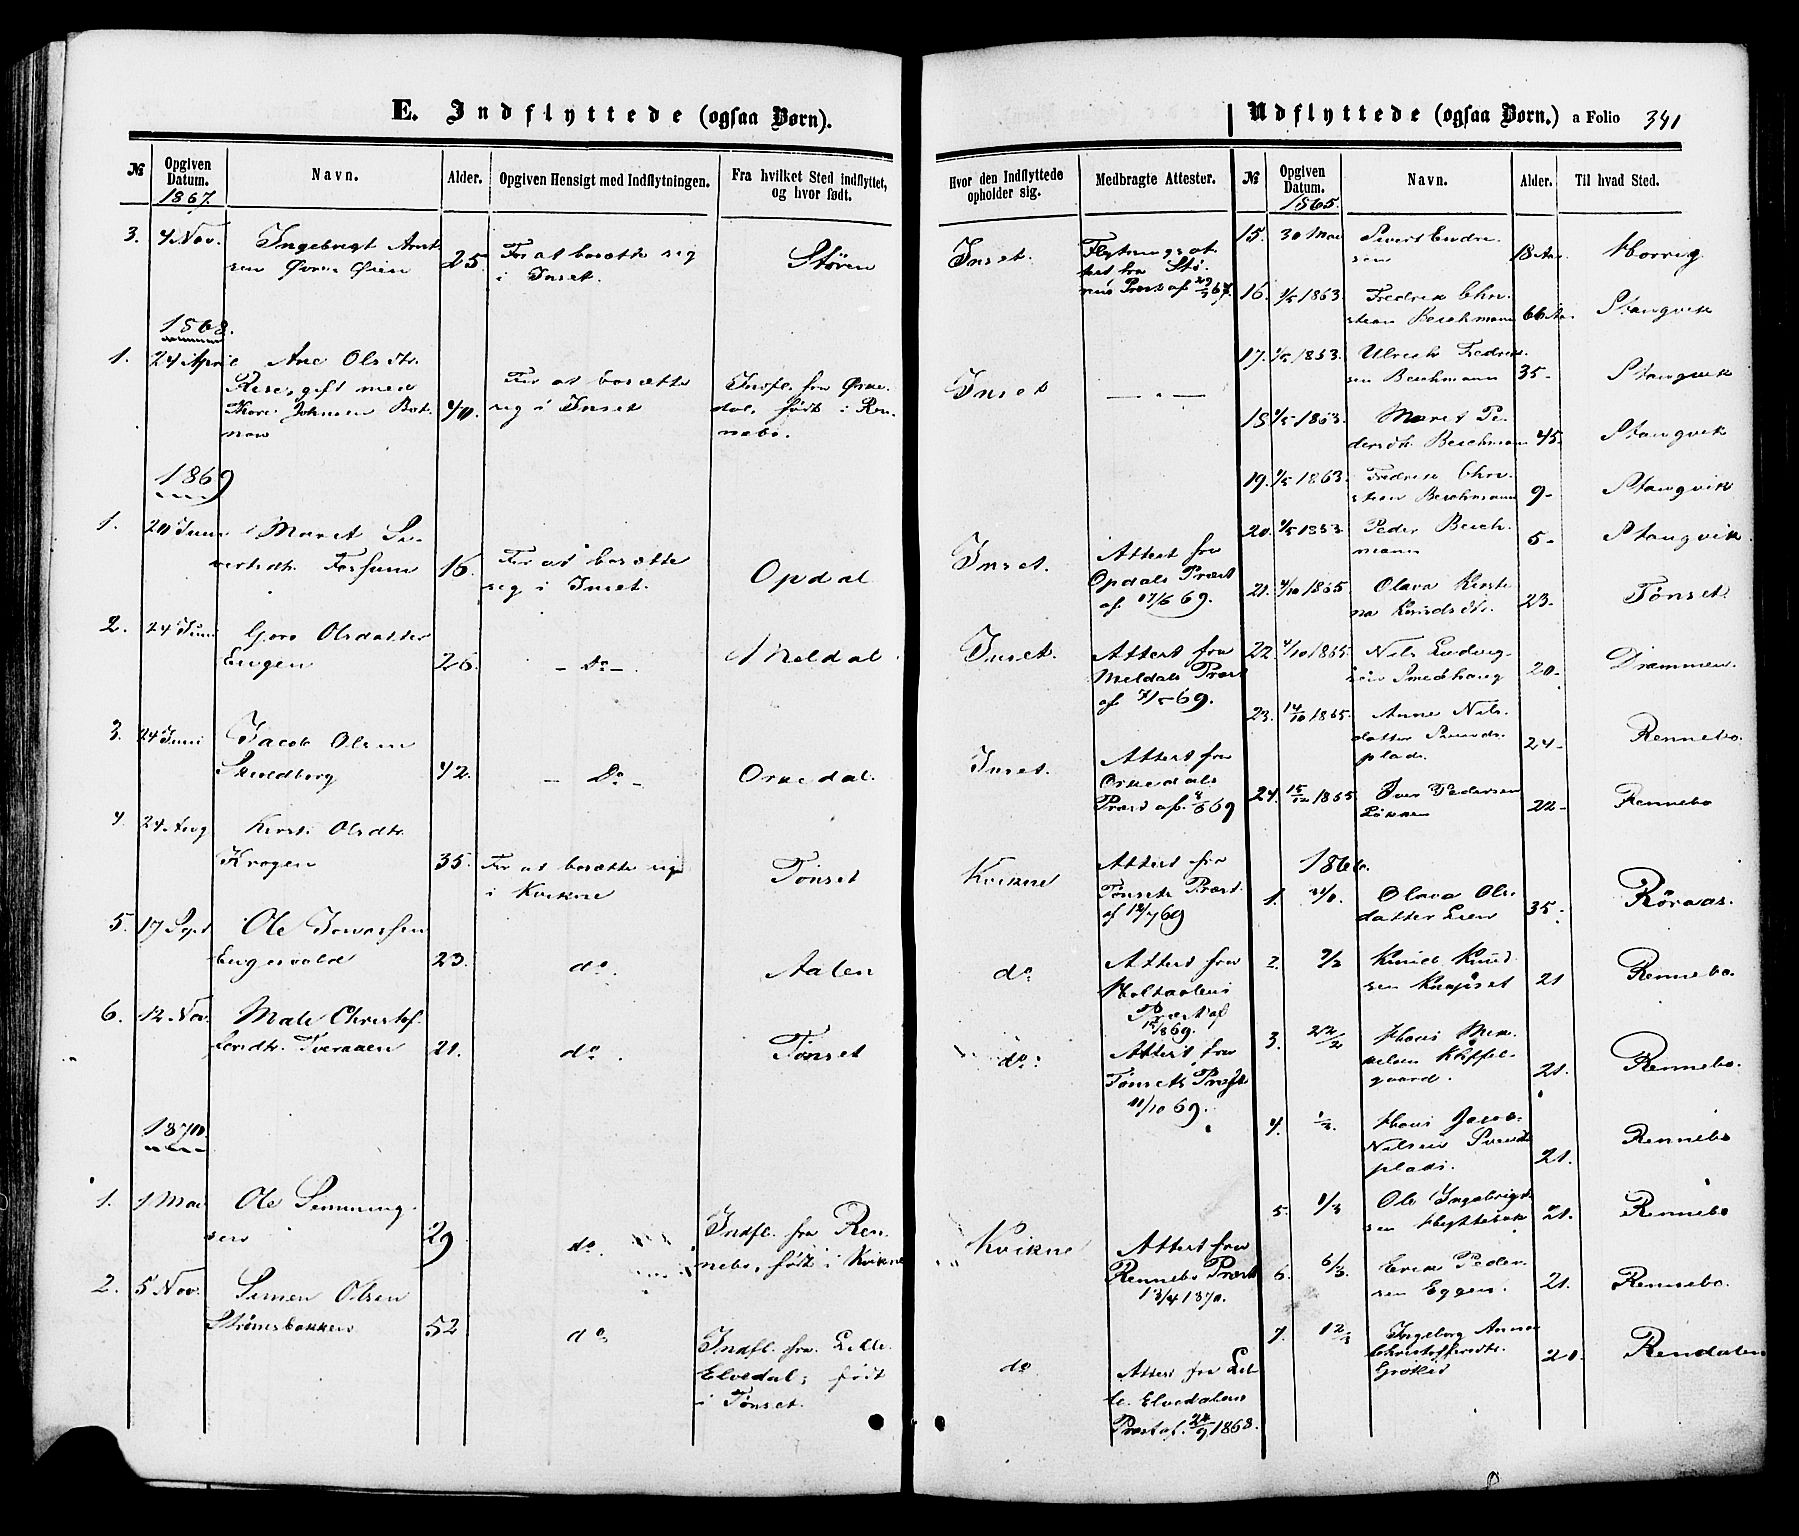 E. Indflyttede (ogsaa Børn).
№
Opgiven Datum.
1867.
Navn.
Alder.
Opgiven Hensigt med Indflytningen.
Fra hvilket Sted indflyttet, og hvor født.
3. 4 Nov. Ingebrigt Arnt
sen Øvre Øien 25. For at bosætte sig
i Inset. Støren
1868.
1. 24 April Ane Olsdtr.
gift med
Johnsen 40. For at bosætte
sig i Inset Indfl. fra Orke
dal, født i Ren
nebo.
1869
1. 20 Juni Marit Si
vertsdtr. Forsum 16. For at bosætte
sig i Inset. Opdal
2. 24 Juni Goro Olsdatter
Engen 26. - Do - Meldal
3. 24 Juni Jacob Olsen
Skuldberg 42. - Do - Orkedal.
4. 24 Aug Kirsti Olsdtr.
Krogen 35. For at bosætte sig
i Kvikne Tønset
5. 17 Sept Ole
Engesvold 23. do. Aalen
6. 12 Nov. Mali Christof
fersdtr. Tveraaen 21. do. Tønset
1870.
1. 1 Mai Ole Semming
sen 29 do. Indfl. fra Ren
nebo, født i Kvikne
2. 5 Nov. Simen Olsen
Strømsbakken 52 do. Indfl. fra Lille
Elvedal; født
i Tønset.
Udflyttede (ogsaa Børn.) a Folio 341
Hvor den Indflyttede opholder sig.
Medbragte Attester.
№
Opgiven Datum.
1865.
Navn.
Alder.
Til hvad Sted.
Inset. Flytningsat
test fra Stø
rens Præst af 29/3 67.
Inset - " -
Inset. Attest fra
Opdals Præst
af 17/6 69.
Inset. Attest fra
Meldals Præst
af 7/5 69.
Inset. Attest fra
Orkedals
Præst af 8/6 69
Kvikne Attest fra
Tønsets Præst
af 12/7 69
do. Attest fra
Holtaalens
Præst af
12/8 69.
do. Attest fra
Tønsets Præst
11/10 69.
Kvikne Attest fra
Rennebo Præst
13/4 1870.
do Attest fra Lil
le Elvedalens
Præst af 24/9 1868.
15. 30 Mai Sivert Endre
sen 18 Aar Horrig
16. 1/5 1863. Fredrik Chri
stian Beichmann 66 Aar Stangvik
17. 1/5 1863. Ulrich Fredrik
sen Beichmann 35 - Stangvik
18 1/5 1863. Marit Pe
dersdtr. Beichmann 45 - Stangvik
19. 1/5 1863. Fredrik Chri
stian Beichmann 9 - Stangvik
20. 1/5 1863. Peder Beich
mann 5 - Stangvik
21. 4/10 1865 Olava Kirsti
na Knudsdtr. 23 - Tønset
22. 4/10 1865. Nils Ludvig
sen Smedhaug 20 - Drammen.
23. 14/10 1865. Anne Nils
datter Svends
plads. 24 - Rennebo.
24. 15/12 1865 Iver Pedersen
Løkken 22 - Rennebo
1866.
1. Olava Ols
datter Lien 35 - Røraas.
2. 9/2 Knud Knud
sen Knapset 21 Rennebo.
3. 22/2 Hans Mik
kelsen Kløffel
gaard. 21. Rennebo.
4. 1/3. Hans Jacob
Nilsen Svends
plads. 21. Rennebo
5. 1/3 Ole Ingebrigt
sen Hyttebak 21. Rennebo
6. 6/3. Erik Peder
sen Eggen. 21. Rennebo.
7. 12/3 Ingeborg Anna
Christoffersdtr. 20. Rendalen